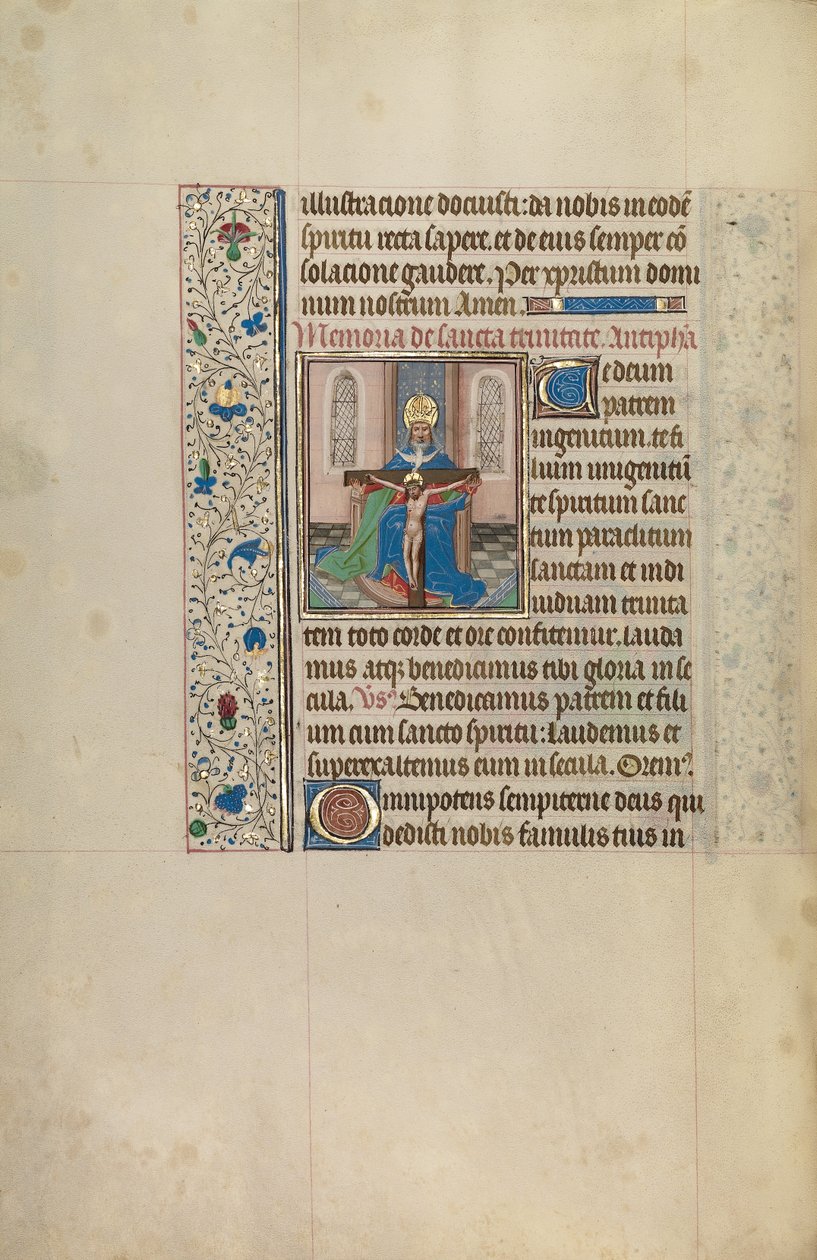 illustracione docuisti: da nobis in eodē
spiritu recta sapere. et de eius semper cō
solacione gaudere. Per xpristum domi
num nostrum Amen.
Memoria de sancta trinitate. Antipha
Te deum
patrem
ingenitum. te fi
lium unigenitū
te spiritum sanc
tum paraclitum
sanctam et indi
uiduam trinita
tem toto corde et ore confitemur. lauda
mus atq; benedicimus tibi gloria in se
cula. Vs? Benedicamus patrem et fili
um cum sancto spiritu: Laudemus et
superexaltemus eum in secula. Orem?.
Omnipotens sempiterne deus qui
dedisti nobis famulis tuis in